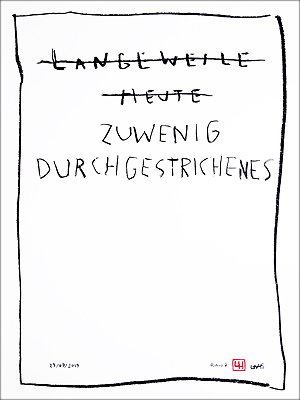 LANGEWEILE
HEUTE
ZUWENIG
DURCHGESTRICHENES